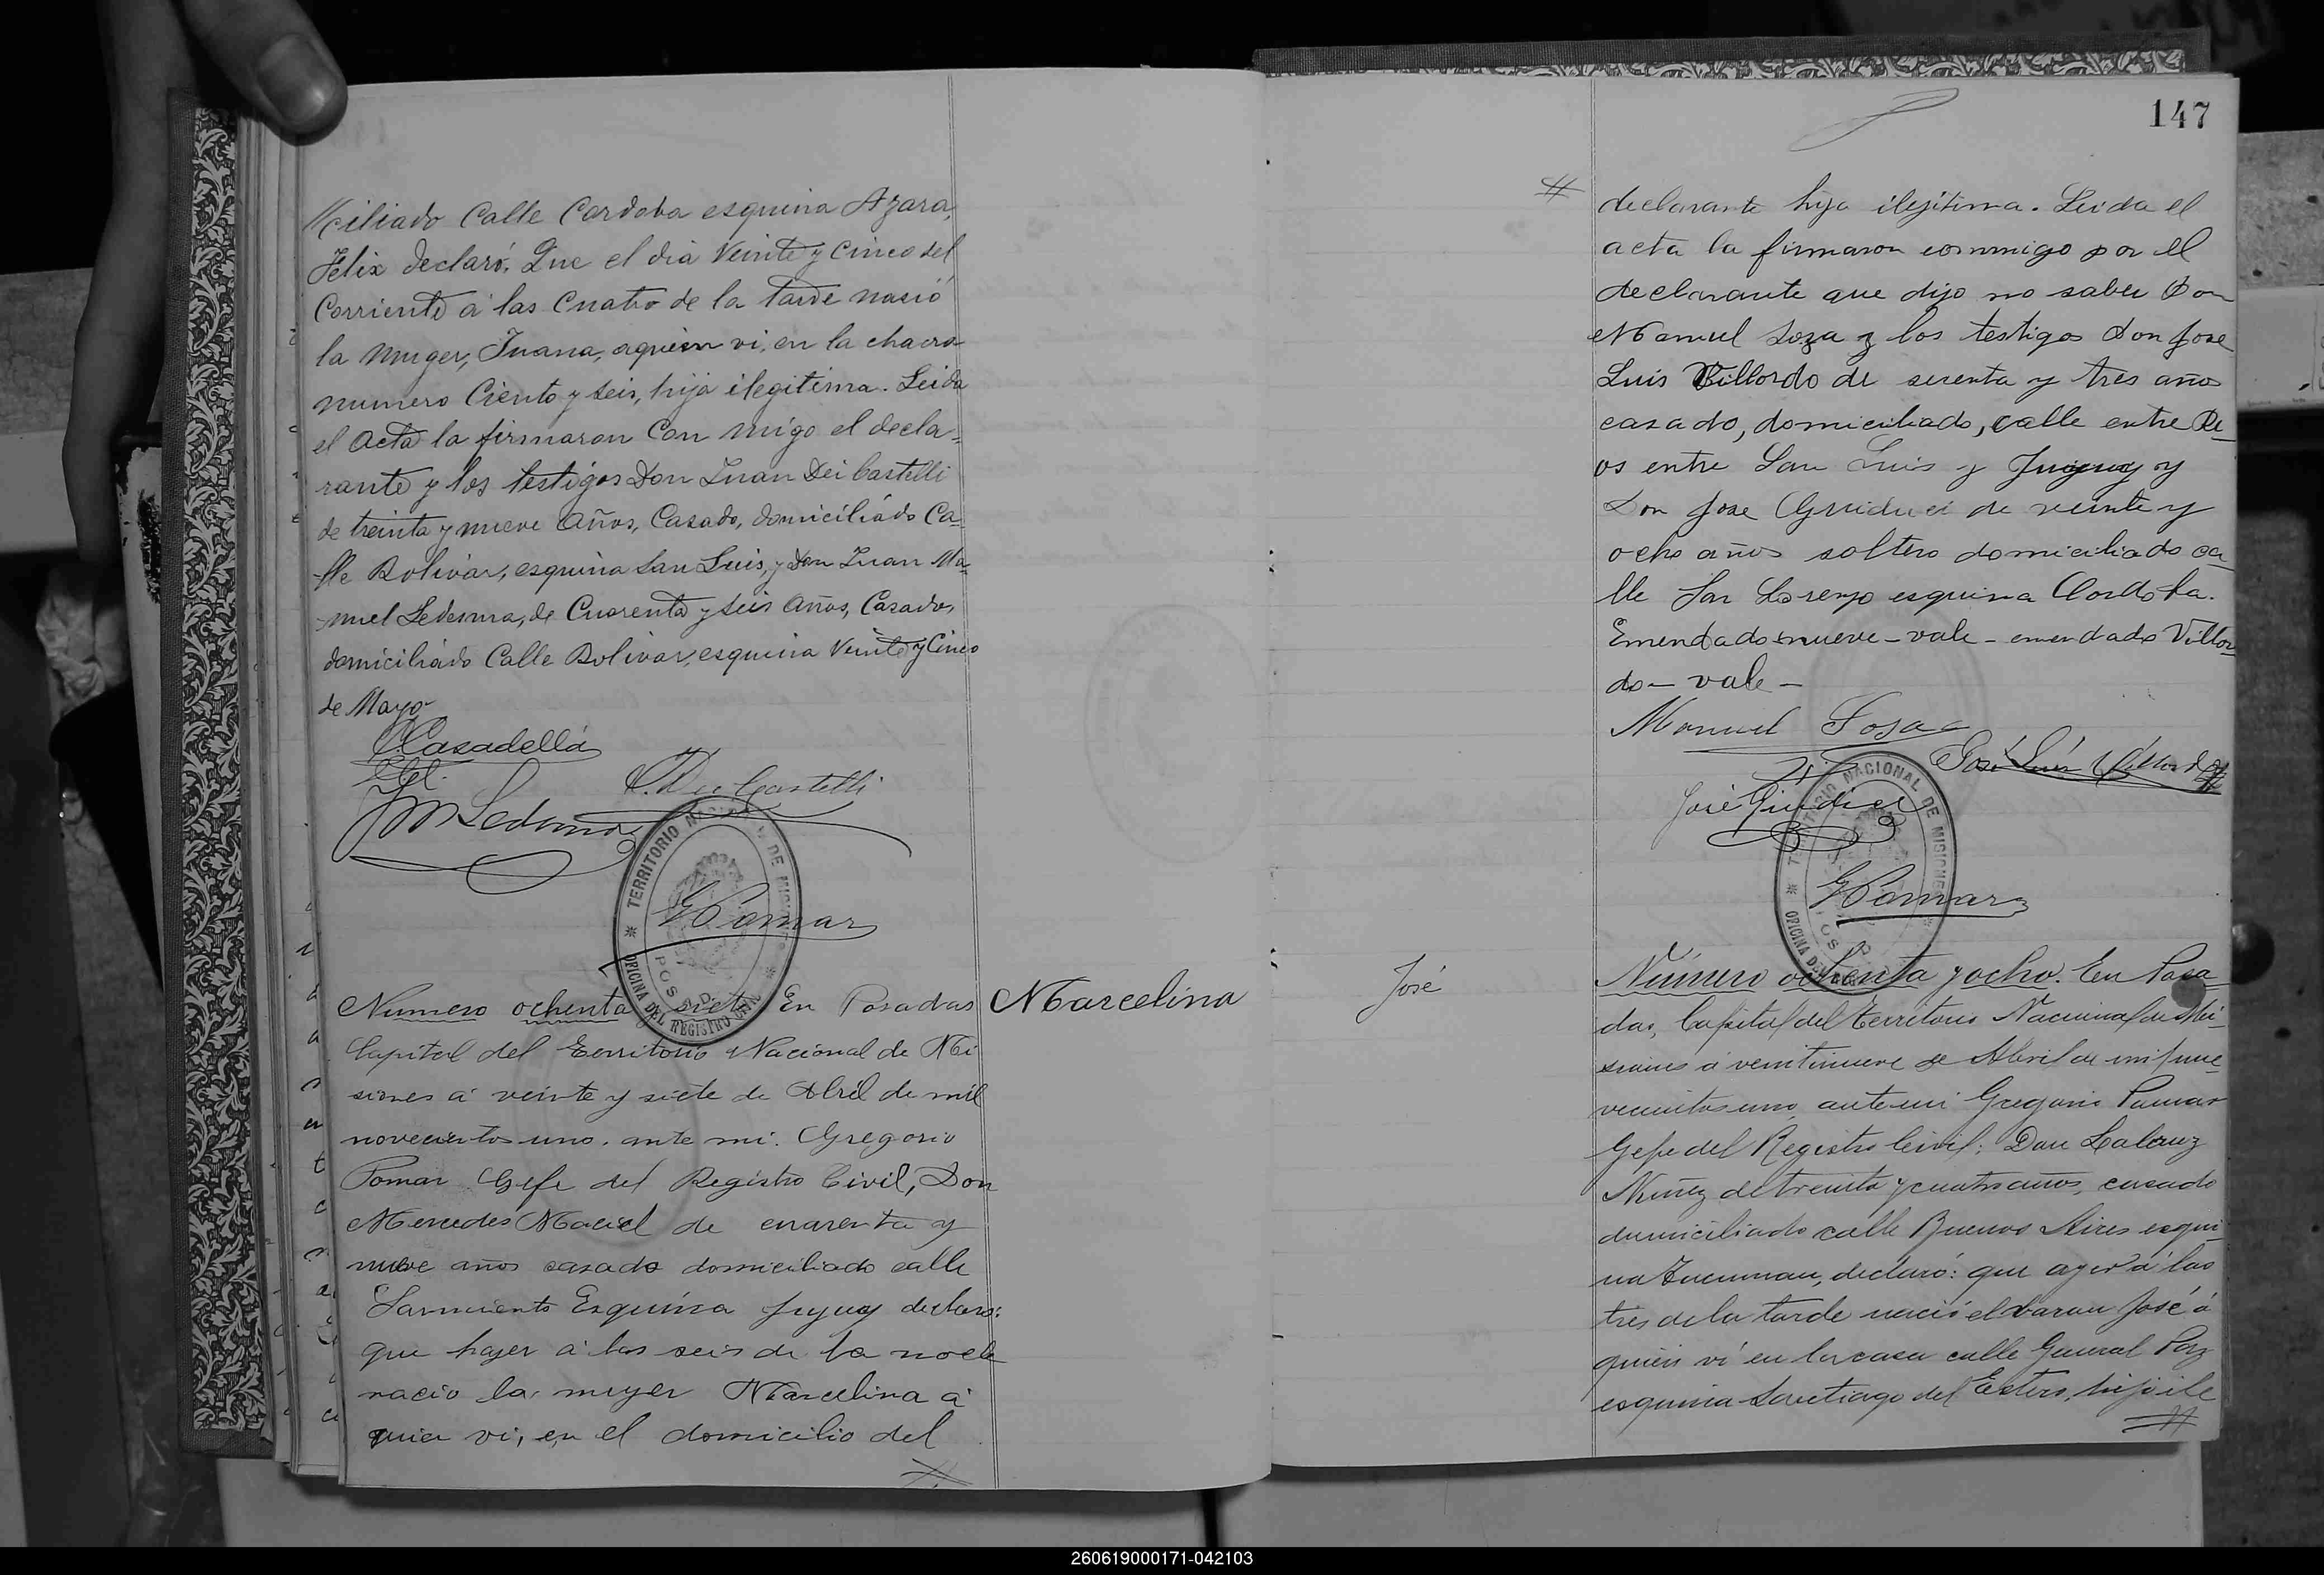 miciliado Calle Cordoba esquina Azara,
Felix declaró: Que el dia Veinte y Cinco del
Corriente á las Cuatro de la tarde nasió
la muger, Juana, aquien vi, en la chacra
numero Ciento y seis, hija ilegitima. Leida
el Acta la firmaron Con migo el decla-
rante y los testigos Don Juan Dei Castelli
de treinta y nueve Años, Casado, domiciliádo Ca-
lle Bolivar, esquina San Luis, y Don Juan Ma-
nuel Ledesma, de Cuarenta y seis Años, Casado,
domiciliádo Calle Bolivar, esquina Veinte y Cinco
de Mayo
Casadellá
J. Dei Castelli
JM Ledesma
TERRITORIO NACIONAL DE MISIONES
OFICINA DEL REGISTRO CIVIL
POSADAS
GPomar
Numero ochenta y siete En Posadas
Marcelina
Capital del Territorio Nacional de Mi
siones á veinte y siete de Abril de mil
novecientos uno. ante mi. Gregorio
Pomar Gefe del Registro Civil, Don
Mercedes Maciel de cuarenta y
nueve años casado domiciliado calle
Sarmiento Esquina Jujuy declaro:
que hayer á las seis de la noche
nacio la muyer Marcelina á
quien vi, en el domicilio del
#
147
# declarante hija ilejitima. Leida el
acta la firmaron commigo por el
declarante que dijo no saber Don
Manuel Soza y los testigos Don Jose
Luis Villordo de secenta y tres años
casado, domiciliado, calle entre Ri-
os entre San Luis y Jujuy y
Don Jose Giudici de veinte y
ocho años soltero domiciliado ca-
lle San Lorenzo esquina Cordoba.
Emendado nueve - vale - emendado Villor-
do - vale -
Manuel Sosa
José Luís Villordo
José Giudici
TERRITORIO NACIONAL DE MISIONES
OFICINA DEL
POSAD
GPomar
José
Número ochenta y ocho. En Posa
das, Capital del Territorio Nacional de Mi-
siones á veintinueve de Abril de mil nue
vecientos uno, ante mi Gregorio Pomar
Gefe del Registro Civil: Don Lalcruz
Nuñez de treinta y cuatro años, casado
domiciliado calle Buenos Aires esqui-
na Tucuman, declaró: que ayer á las
tres de la tarde nació el varon José á
quien ví en la casa calle General Paz
esquina Santiago del Estero, hijo ile
#
260619000171-042103